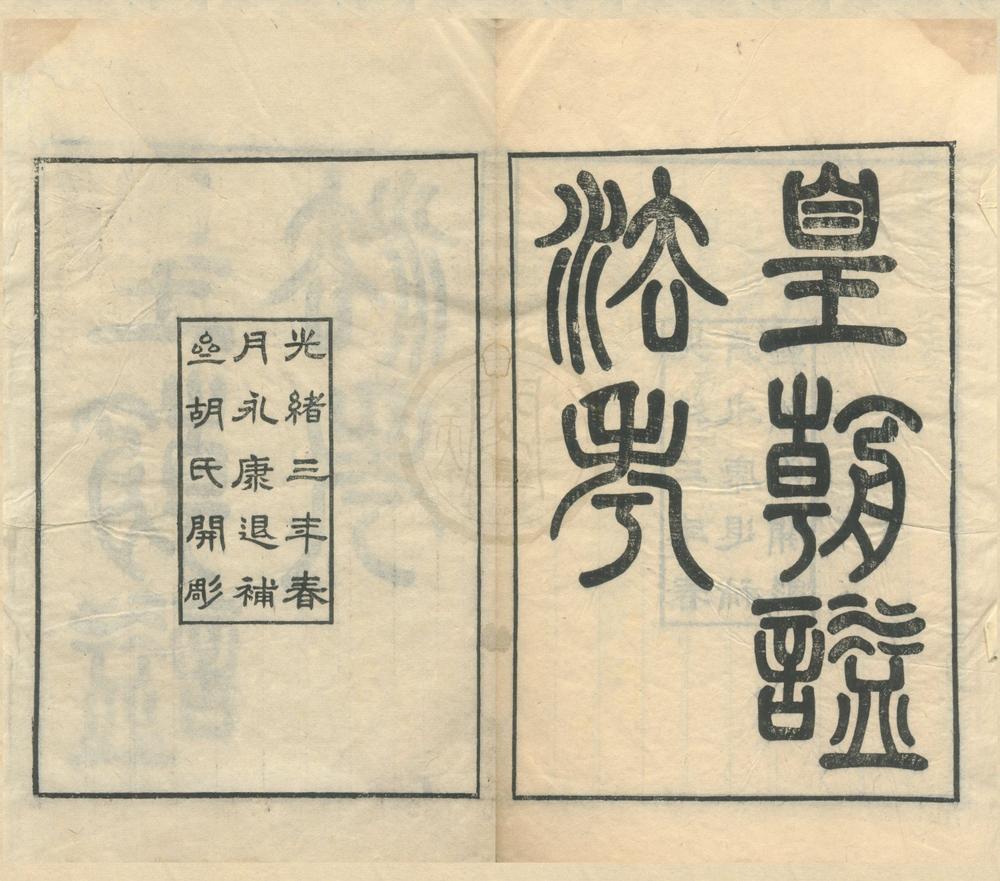 皇朝諡
法考
光緒三年春
月永康退補
亝胡氏開彫